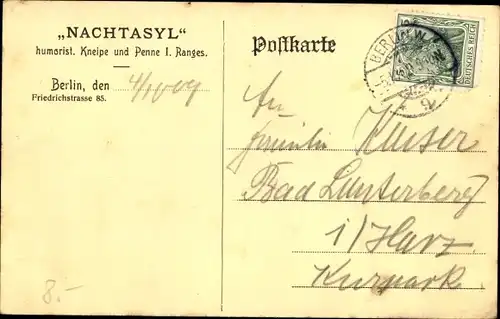 „NACHTASYL“
humorist. Kneipe und Penne I. Ranges.
Berlin, den
Friedrichstrasse 85.
8.-
Postkarte
BERLIN.W.
DEUTSCHES REICH
An
Fräulein Kaiser
Bad Lauterberg
i/Harz
Kurpark.